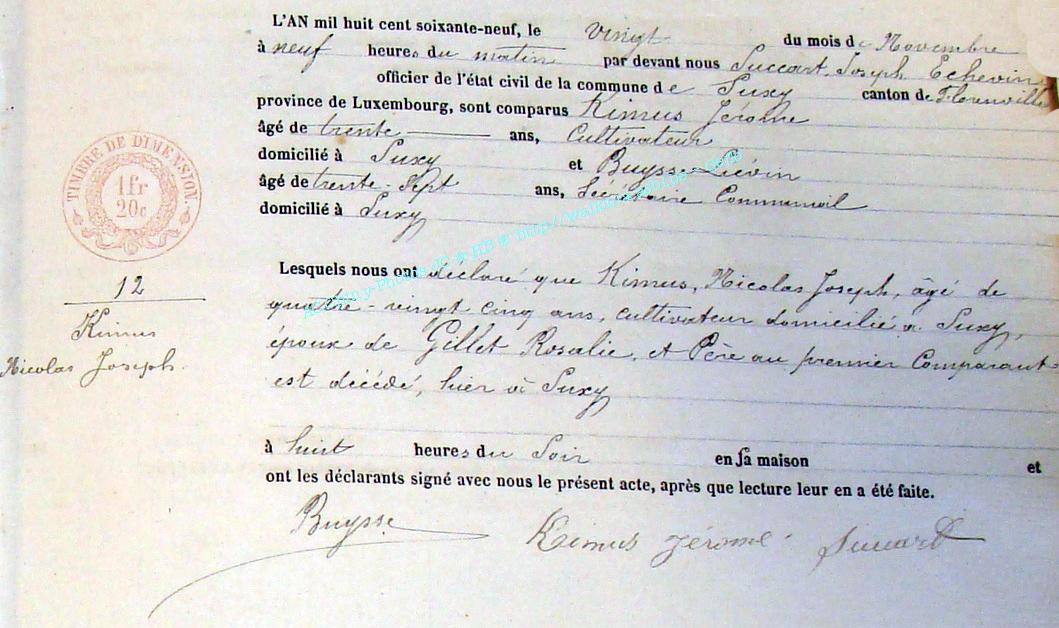 L'AN mil huit cent soixante-neuf, le vingt du mois de Novembre
à neuf heures du matin par devant nous Succart, Joseph Echevin,
officier de l'état civil de la commune de Suxy canton de Florenville
province de Luxembourg, sont comparus Kimus Jérôme
âgé de trente ans, Cultivateur
domicilié à Suxy et Buysse Liévin
âgé de trente-sept ans, Secrétaire Communal
domicilié à Suxy
TIMBRE DE DIMENSION.
1fr
20c
12
Kimus
Nicolas Joseph.
Lesquels nous ont déclaré que Kimus, Nicolas Joseph, âgé de
quatre-vingt cinq ans, cultivateur domicilié à Suxy,
époux de Gillet Rosalie, et Père au premier Comparant
est décédé, hier à Suxy
à huit heures du Soir en sa maison et
ont les déclarants signé avec nous le présent acte, après que lecture leur en a été faite.
Buysse Kimus Jérome Succart